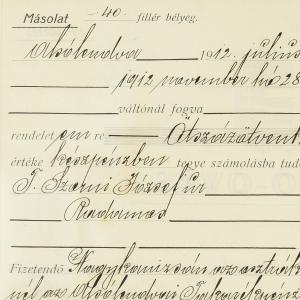 Másolat -40.- fillér bélyeg.
Alsólendva 1912. julius
1912 november hó 28
váltónál fogva
rendelet em re Ötszázötven
értéke készpénzben tegye számolásba tud
T. Szemi József úr
Radamos
Fizetendő Nagykanizsán az osztrák
nél az Alsólendvai Takarékpénz